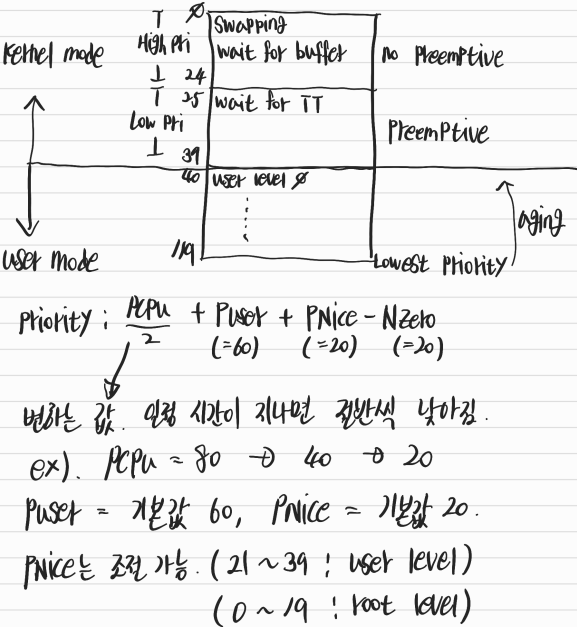 0 Swapping
High Pri
Kernel mode
wait for buffer
no Preemptive
24
25 wait for TT
Low Pri
Preemptive
39
40 user level 0
aging
user mode
119
Lowest Priority
Priority : PCPU/2 + Puser + PNice - Nzero
(=60) (=20) (=20)
변하는 값. 일정 시간이 지나면 절반씩 낮아짐.
ex). PCPU = 80 → 40 → 20
Puser = 기본값 60, PNice = 기본값 20.
PNice는 조절 가능. (21 ~ 39 : user level)
(0 ~ 19 : root level)